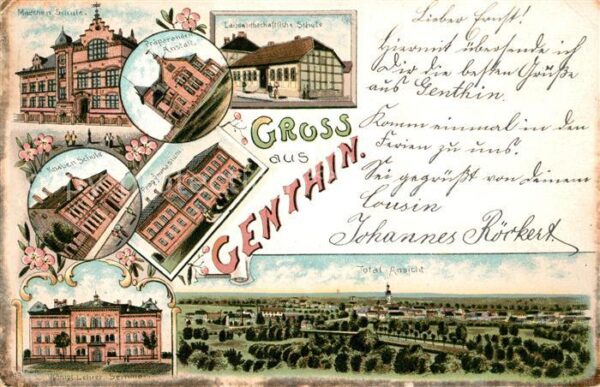 Mädchen Schule.
Präparanden
Anstalt.
Landwirthschaftliche Schule
Knaben Schule
Progymnasium
GRUSS
aus
GENTHIN.
Total-Ansicht
Königl. Lehrer Seminar
Lieber Ernst!
Hiermit übersende ich
Dir die besten Grüße
aus Genthin.
Komm einmal in den
Ferien zu uns.
Sei gegrüßt von deinem
Cousin
Johannes Röckert